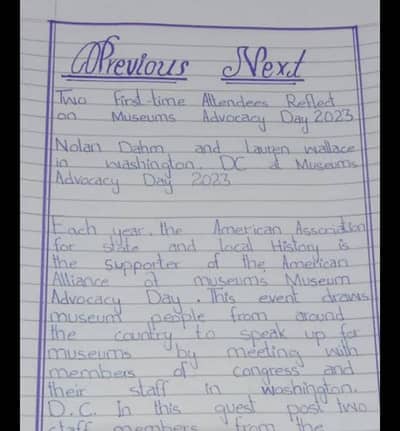 Previous Next
Two First-time Attendees Reflect
on Museums Advocacy Day 2023
Nolan Dahm and Lauren Wallace
in Washington, DC at Museums
Advocacy Day 2023
Each year, the American Association
for state and local History is
the supporter of the American
Alliance of museums Museum
Advocacy Day. This event draws
museum people from around
the country to speak up for
museums by meeting with
members of congress and
their staff in washington,
D.C. In this guest post two
staff members from the